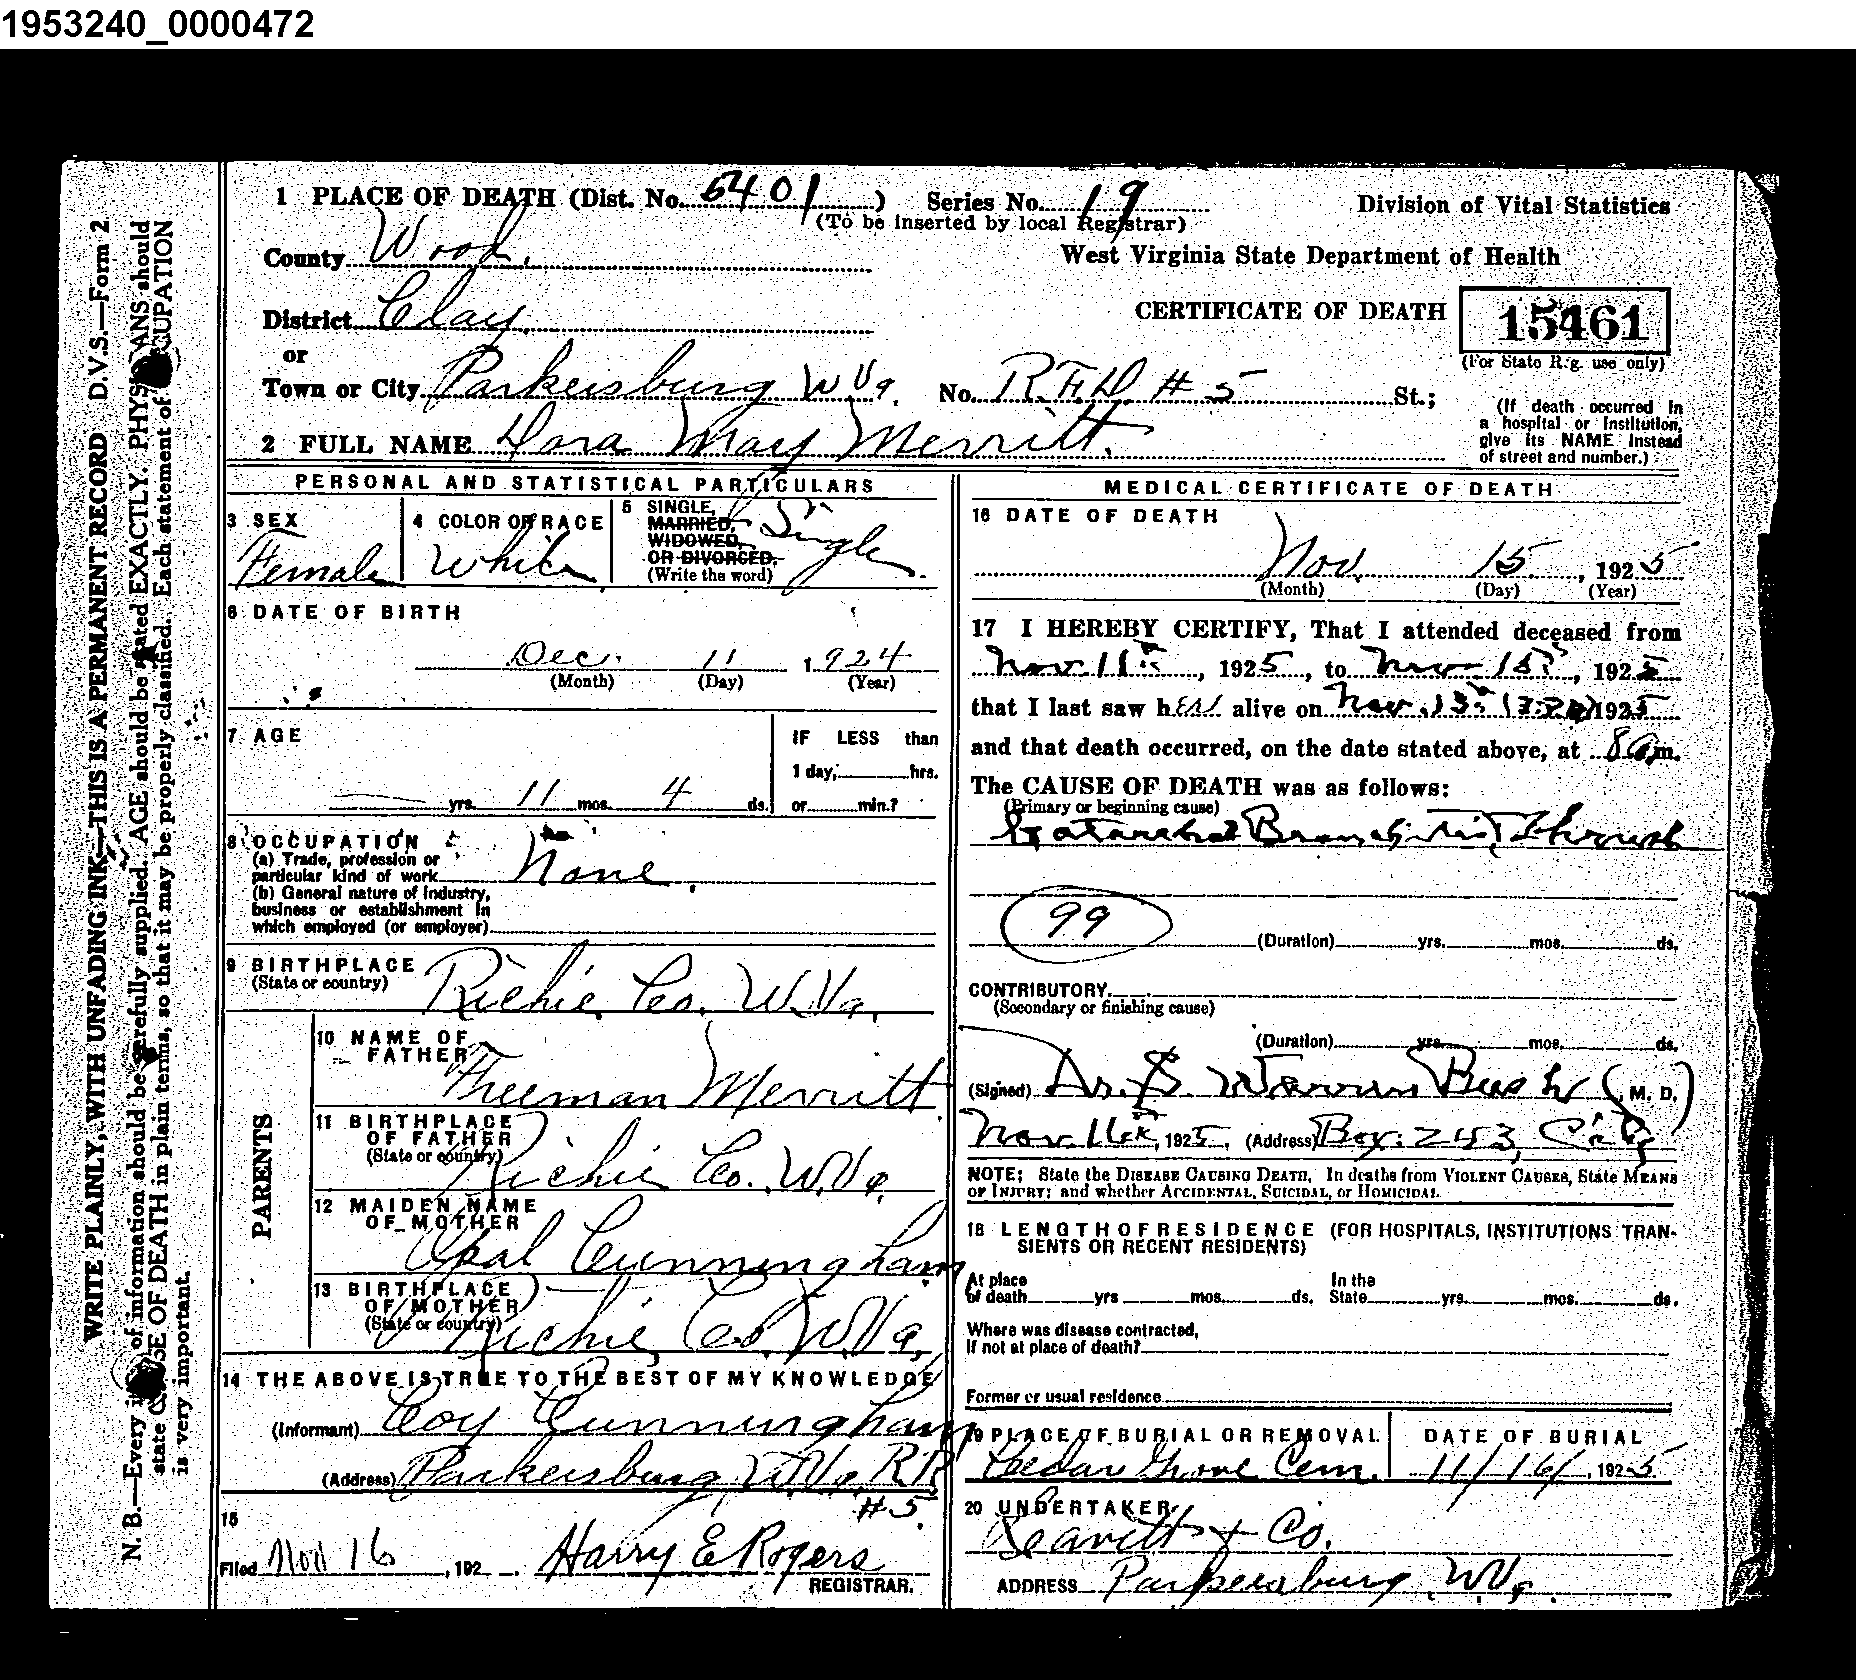 1953240_0000472
1 PLACE OF DEATH (Dist. No. 5401) Series No. 19
(To be inserted by local Registrar)
Division of Vital Statistics
County Wood.
West Virginia State Department of Health
District Clay.
CERTIFICATE OF DEATH 15461
(For State R.g. use only)
or
Town or City Parkersburg W Va. No. R.F.D. # 5 St.;
(If death occurred in
a hospital or institution,
give its NAME instead
of street and number.)
2 FULL NAME Dora May Merritt.
PERSONAL AND STATISTICAL PARTICULARS
3 SEX
Female
4 COLOR OR RACE
White
5 SINGLE,
MARRIED,
WIDOWED,
OR DIVORCED.
(Write the word)
Single
6 DATE OF BIRTH
Dec. 11 1924
(Month) (Day) (Year)
7 AGE
— yrs. 11 mos. 4 ds.
IF LESS than
1 day, hrs.
or min.?
8 OCCUPATION
(a) Trade, profession or
particular kind of work None.
(b) General nature of industry,
business or establishment in
which employed (or employer)
9 BIRTHPLACE
(State or country) Richie Co. W.Va.
PARENTS
10 NAME OF
FATHER
Freeman Merritt.
11 BIRTHPLACE
OF FATHER
(State or country) Richie Co. W.Va.
12 MAIDEN NAME
OF MOTHER
Opal Cunningham
13 BIRTHPLACE
OF MOTHER
(State or country) Richie Co. W.Va.
14 THE ABOVE IS TRUE TO THE BEST OF MY KNOWLEDGE
(Informant) Coy Cunningham
(Address) Parkersburg W.Va. R.R.
# 5.
15
Filed Nov 16, 192 . Harry E Rogers
REGISTRAR.
MEDICAL CERTIFICATE OF DEATH
16 DATE OF DEATH
Nov. 15, 1925
(Month) (Day) (Year)
17 I HEREBY CERTIFY, That I attended deceased from
Nov. 11th, 1925, to Nov. 15th, 1925
that I last saw her alive on Nov. 13th 1925
and that death occurred, on the date stated above, at 8 am.
The CAUSE OF DEATH was as follows:
(Primary or beginning cause)
Catarrhal Bronchitis, Through
99
(Duration) yrs. mos. ds.
CONTRIBUTORY
(Secondary or finishing cause)
(Duration) yrs. mos. ds.
(Signed) Dr. S. Warren Bush (M. D.)
Nov. 16th, 1925. (Address) Box. 243, City
NOTE: State the DISEASE CAUSING DEATH. In deaths from VIOLENT CAUSES, State MEANS
OF INJURY; and whether ACCIDENTAL, SUICIDAL, or HOMICIDAL.
18 LENGTH OF RESIDENCE (FOR HOSPITALS, INSTITUTIONS TRAN-
SIENTS OR RECENT RESIDENTS)
At place
of death yrs mos. ds.
In the
State yrs. mos. ds.
Where was disease contracted,
If not at place of death?
Former or usual residence
19 PLACE OF BURIAL OR REMOVAL
Cedar Grove Cem.
DATE OF BURIAL
11/16/, 1925.
20 UNDERTAKER
Leavitt & Co.
ADDRESS Parkersburg W.Va.
WRITE PLAINLY, WITH UNFADING INK—THIS IS A PERMANENT RECORD D.V.S.—Form 2
N. B.—Every of information should be carefully supplied. AGE should be stated EXACTLY. PHYSICIANS should
state CAUSE OF DEATH in plain terms, so that it may be properly classified. Each statement of OCCUPATION
is very important.